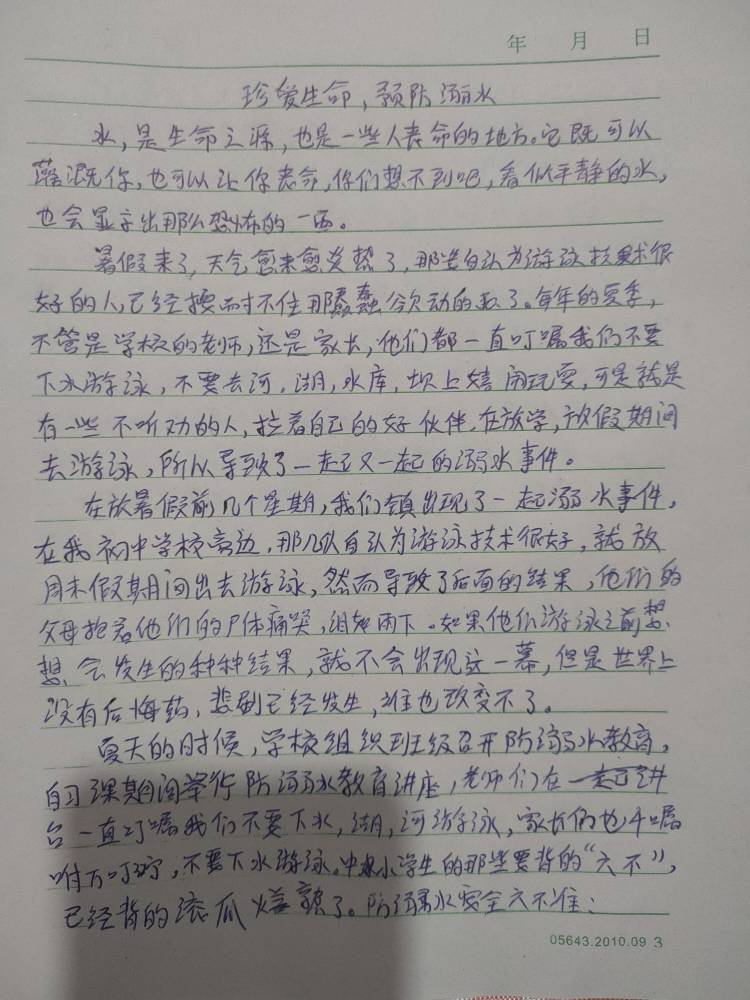 年 月 日
珍爱生命，预防溺水
水，是生命之源，也是一些人丧命的地方。它既可以
灌溉你，也可以让你丧命，你们想不到吧，看似平静的水，
也会显示出那么恐怖的一面。
暑假来了，天气愈来愈炎热了，那些自认为游泳技术很
好的人，已经按耐不住那蠢蠢欲动的心了。每年的夏季，
不管是学校的老师，还是家长，他们都一直叮嘱我们不要
下水游泳，不要去河，湖，水库，坝上嬉闹玩耍，可是就是
有一些不听劝的人，拉着自己的好伙伴，在放学，放假期间
去游泳，所以导致了一起又一起的溺水事件。
在放暑假前几个星期，我们镇出现了一起溺水事件，
在我初中学校旁边，那几队自认为游泳技术很好，就放
周末假期间出去游泳，然而导致了后面的结果，他们的
父母抱着他们的尸体痛哭，泪如雨下。如果他们游泳之前想
想会发生的种种结果，就不会出现这一幕，但是世界上
没有后悔药，悲剧已经发生，谁也改变不了。
夏天的时候，学校组织班级召开防溺水教育，
自习课期间举行防溺水教育讲座，老师们在讲
台一直叮嘱我们不要下水，湖，河游泳，家长们也千嘱
咐万叮咛，不要下水游泳。中小学生的那些要背的“六不”，
已经背的滚瓜烂熟了。防溺水安全六不准：
05643.2010.09 3